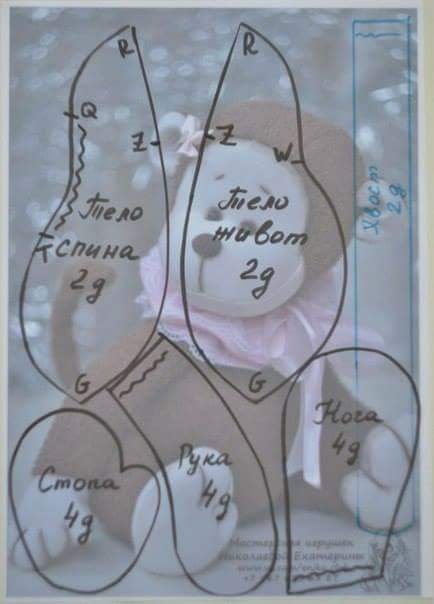 R
R
Q
Z
Z
W
Тело
спина
2д
T
Тело
живот
2д
Хвост
2д
G
G
Стопа
4д
Рука
4д
Нога
4д
Мастерская игрушек
Николаевой Екатерины